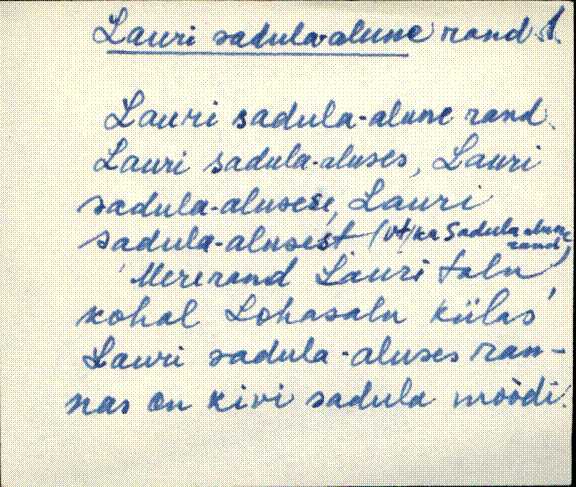 Lauri sadula-alune rand. 1.
Lauri sadula-alune rand.
Lauri sadula-aluses, Lauri
sadula-alusesse, Lauri
sadula-alusest (vt/ka Sadulaalune
rand)
'Mererand Lauri talu
kohal Lohasalu külas'
Lauri sadula-aluses ran-
nas on kivi sadula moodi.